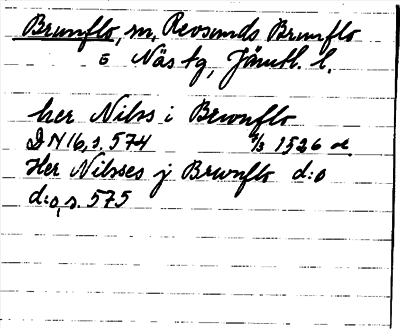 Brunflo, sn, Revsunds Brunflo
o Näs tg, Jämtl. l.
her Nilss i Brwnflo
DN 16, s. 574 1/3 1526 or.
Her Nilsses j Brwnflo d:o
d:o, s. 575